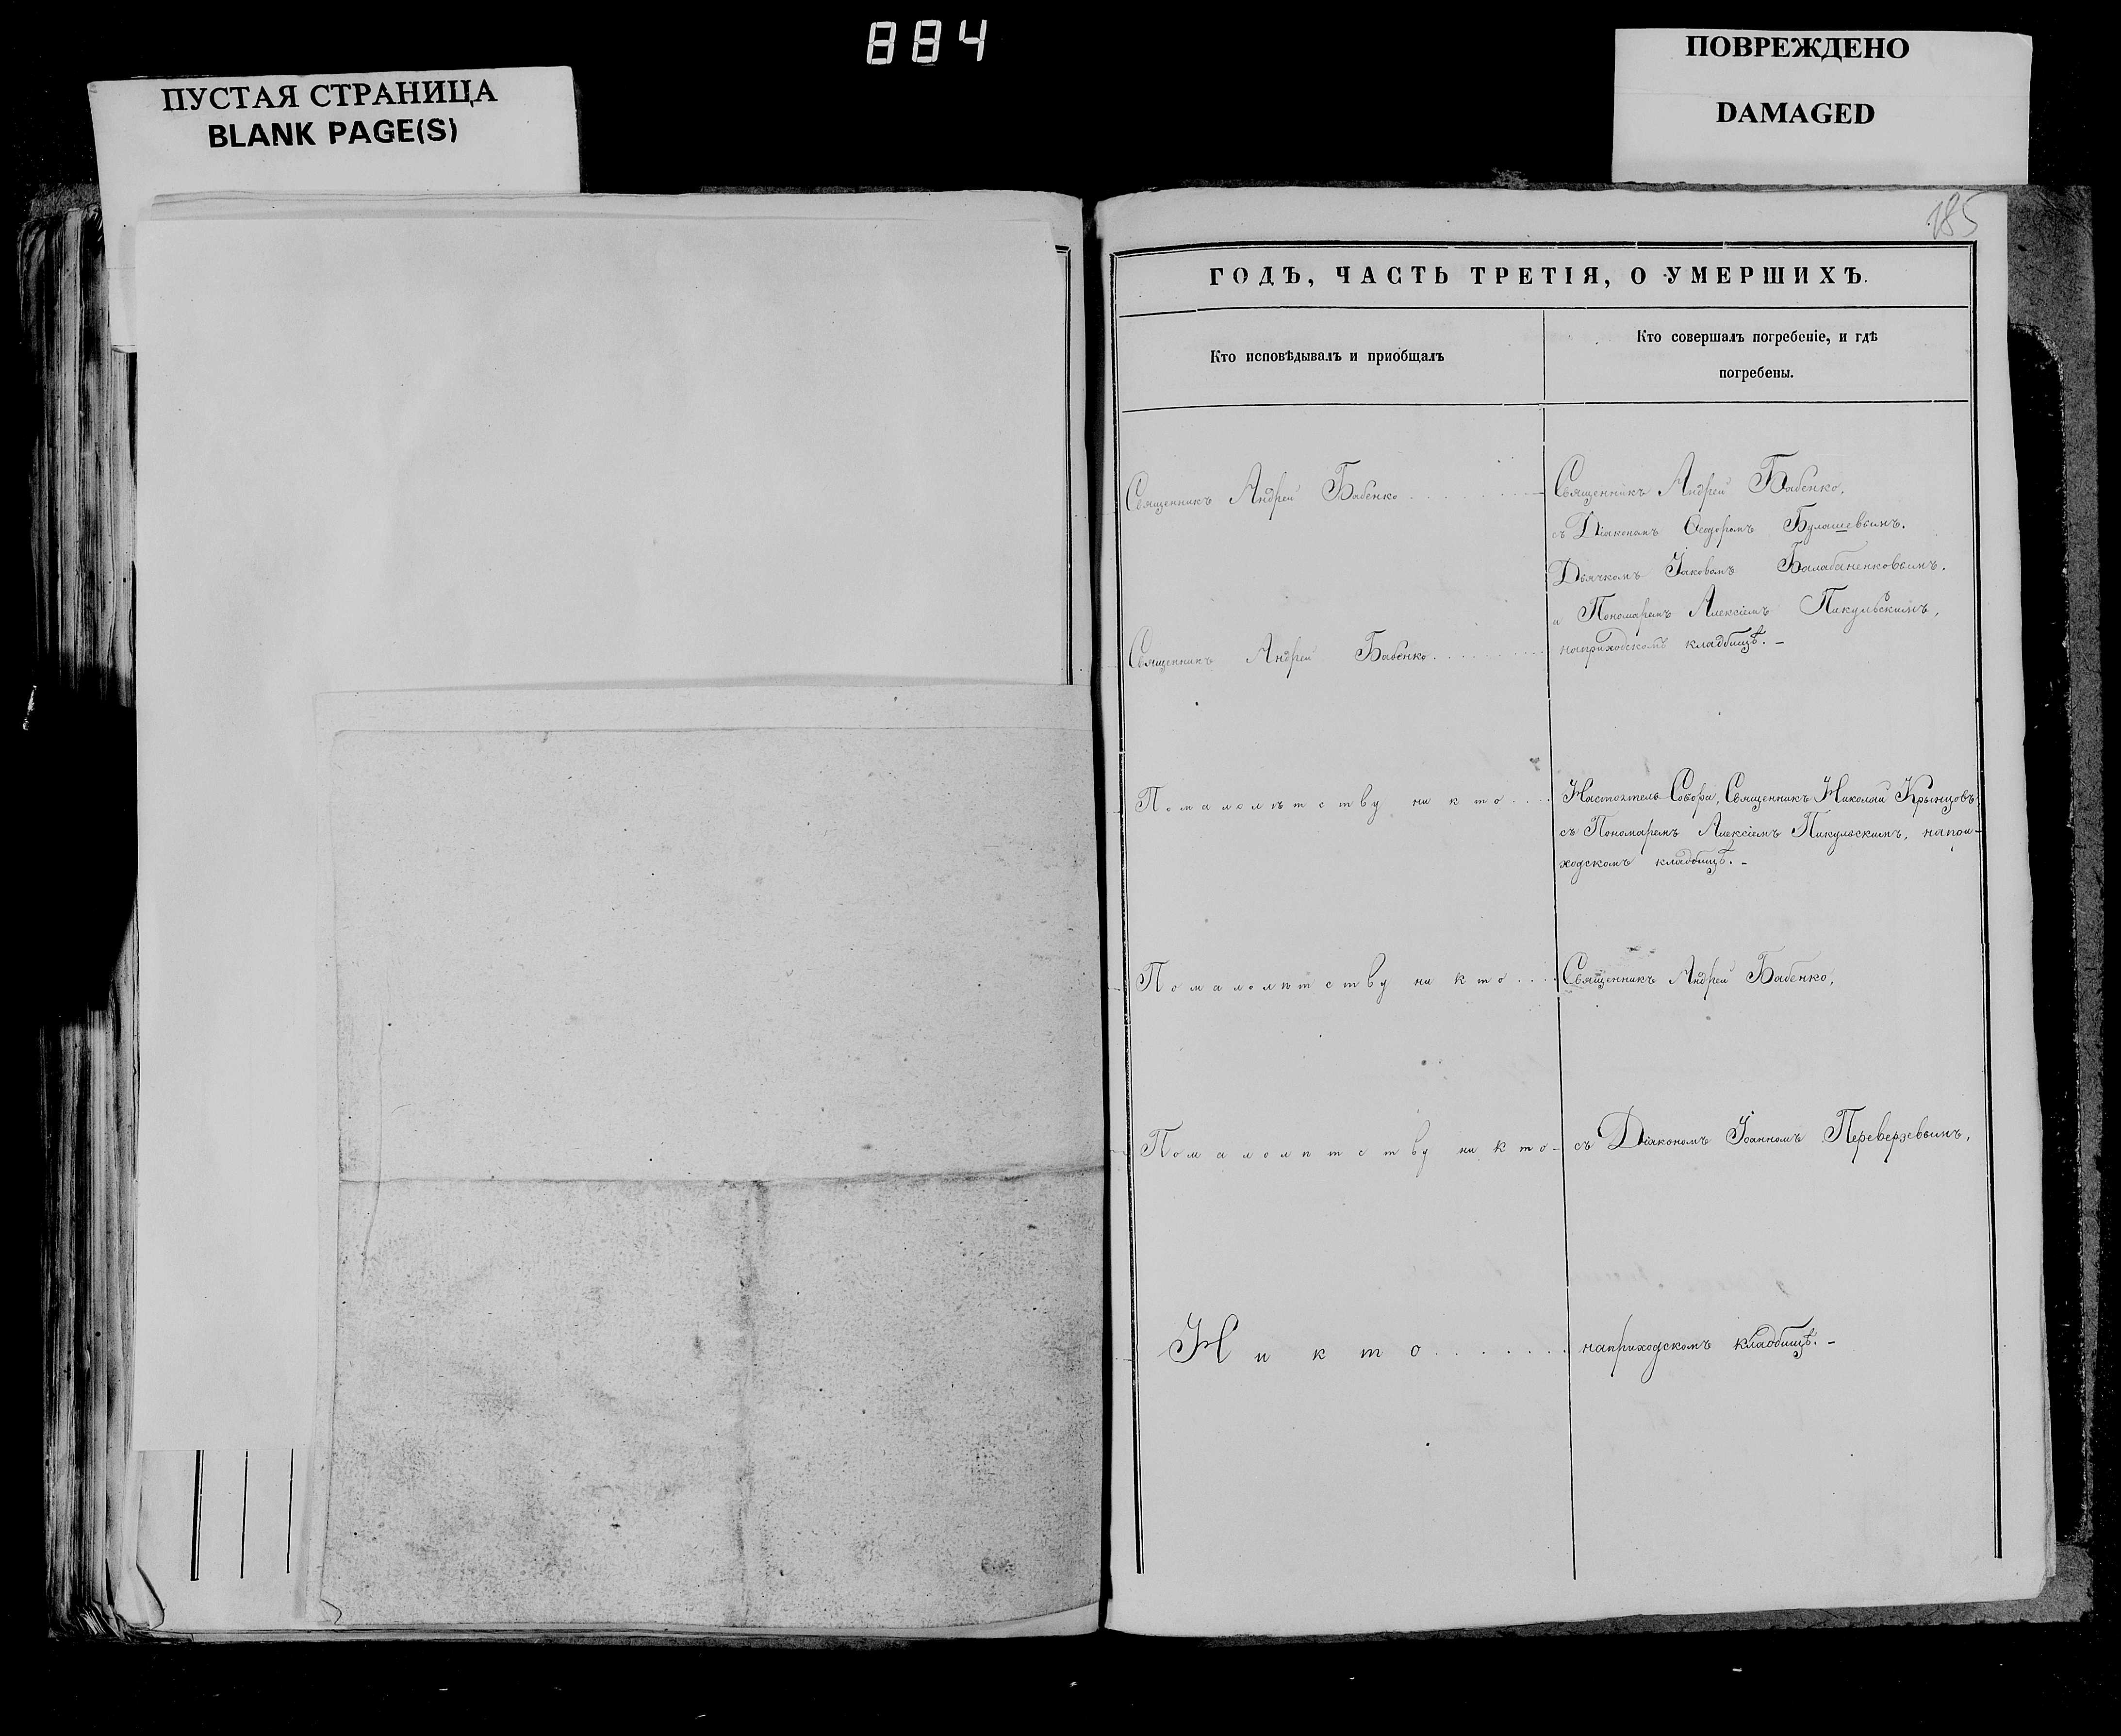 884
ПУСТАЯ СТРАНИЦА
BLANK PAGE(S)
ПОВРЕЖДЕНО
DAMAGED
185
ГОДЪ, ЧАСТЬ ТРЕТІЯ, О УМЕРШИХЪ.
Кто исповѣдывалъ и пріобщалъ
Кто совершалъ погребеніе, и гдѣ
погребены.
Священникъ Андрей Бабенко
Священникъ Андрей Бабенко,
съ Діакономъ Ѳеодоромъ Булашевымъ.
Дьячкомъ Іаковомъ Балабаненковымъ.
и Пономаремъ Алексіемъ Пикульскимъ,
Священникъ Андрей Бабенко
наприходскомъ кладбищѣ. –
Помалолѣтству никто
Настоятель Собора, Священникъ Николай Крынцовъ
съ Пономаремъ Алексіемъ Пикульскимъ, напри-
ходскомъ кладбищѣ. –
Помалолѣтству никто
Священникъ Андрей Бабенко,
Помалолѣтству никто
съ Діакономъ Іоанномъ Переверзевымъ,
Никто
наприходскомъ кладбищѣ. –